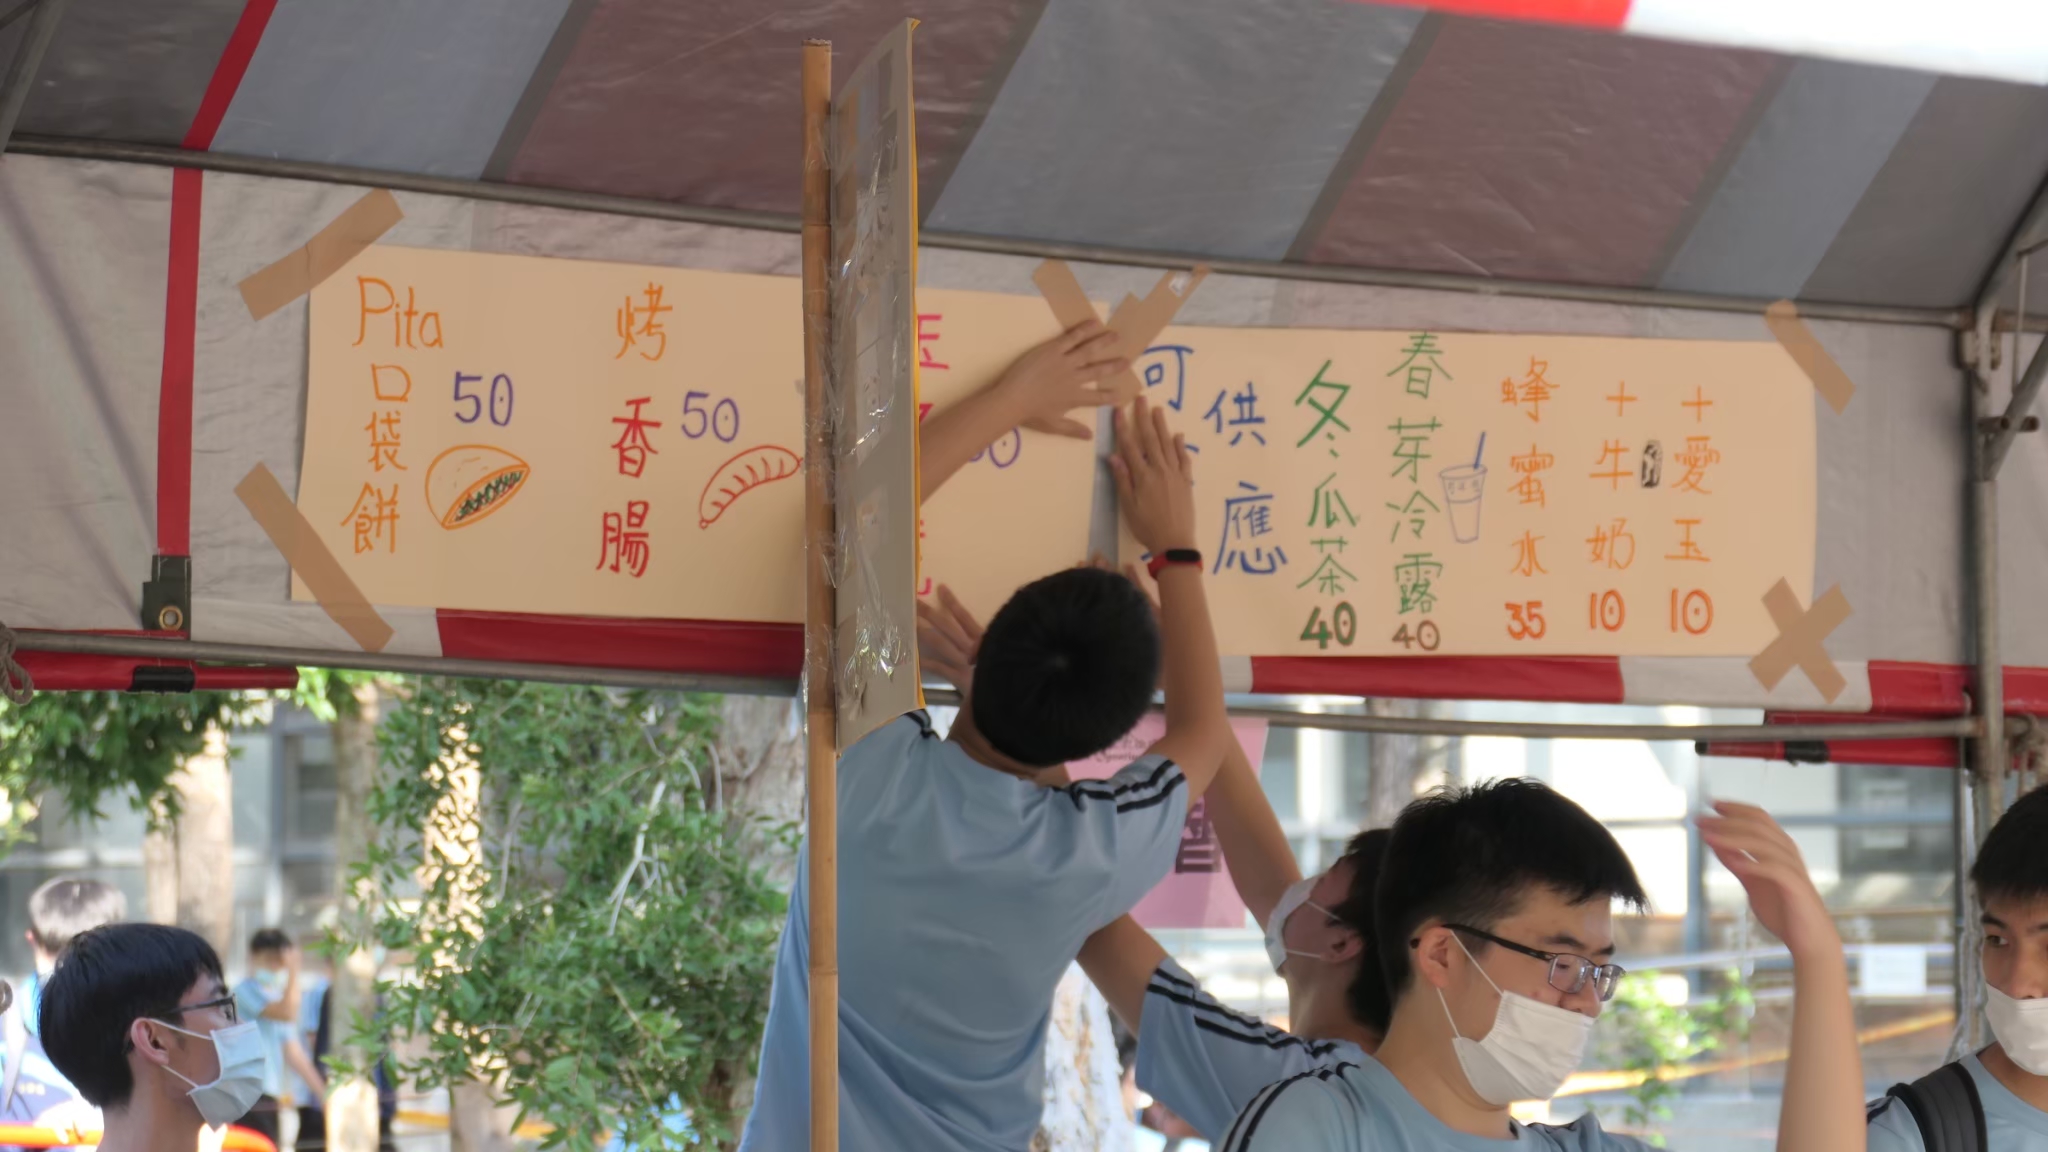 Pita
口袋餅
50
烤香腸
50
供應
冬瓜茶
40
春芽冷露
40
蜂蜜水
35
+牛奶
10
+愛玉
10